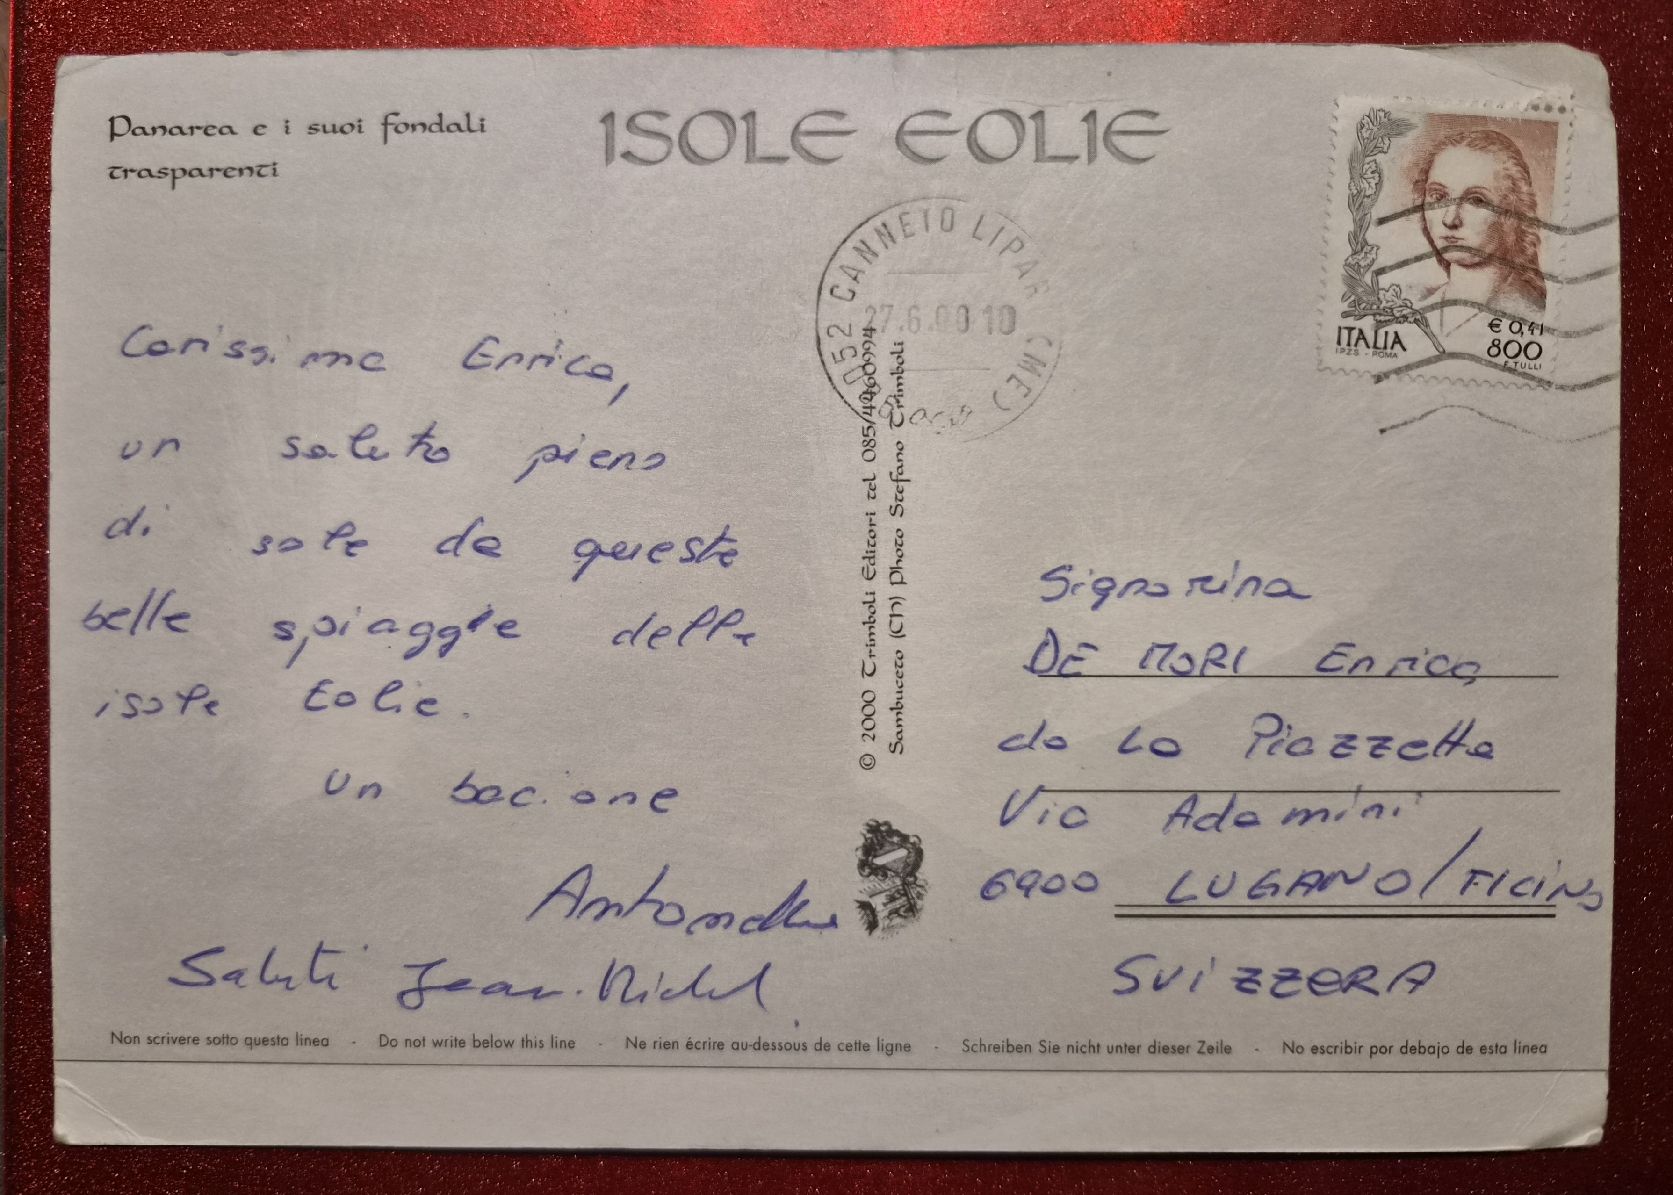 Panarea e i suoi fondali
trasparenti
ISOLE EOLIE
052 CANNETO LIPARI (ME)
27.6.00 10
ITALIA
I.P.Z.S. - ROMA
€ 0,41
800
F. TULLI
Carissima Enrica,
un saluto pieno
di sole da queste
belle spiaggie delle
isole Eolie.
un bacione
Antonella
Saluti Jean-Michel
© 2000 Trimboli Editori tel 085/4460994
Sambuceto (CH) Photo Stefano Trimboli
Signorina
DE MORI Enrica
do La Piazzetta
Via Adamini
6900 LUGANO/TICINO
SVIZZERA
Non scrivere sotto questa linea - Do not write below this line - Ne rien écrire au-dessous de cette ligne - Schreiben Sie nicht unter dieser Zeile - No escribir por debajo de esta linea